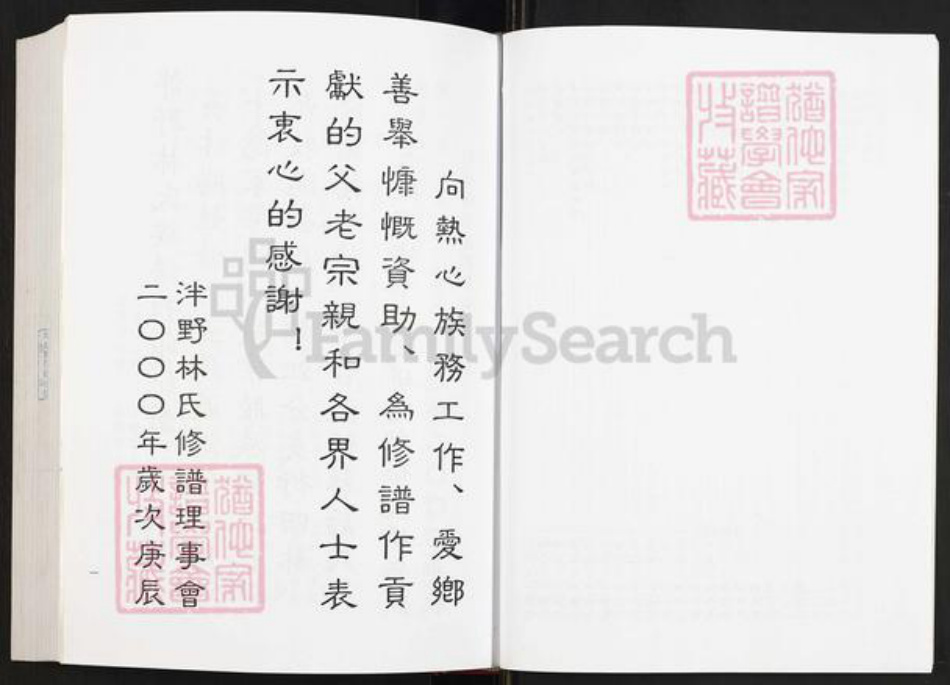 向熱心族務工作、愛鄉
善舉慷慨資助、為修譜作貢
獻的父老宗親和各界人士表
示衷心的感謝！
泮野林氏修譜理事會
二〇〇〇年歲次庚辰
猶他家
譜學會
收藏
猶他家
譜學會
收藏
FamilySearch